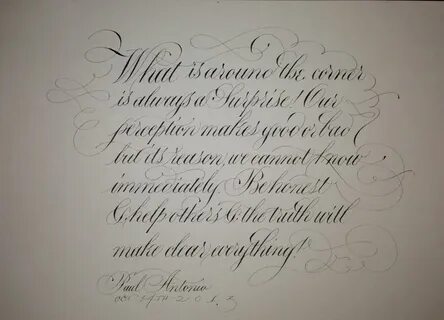 What is around the corner
is always a Surprise! Our
perception makes good or bad
but its reason, we cannot know
immediately. Be honest
& help others & the truth will
make clear, everything!
Paul Antonio
Oct 24th 2012